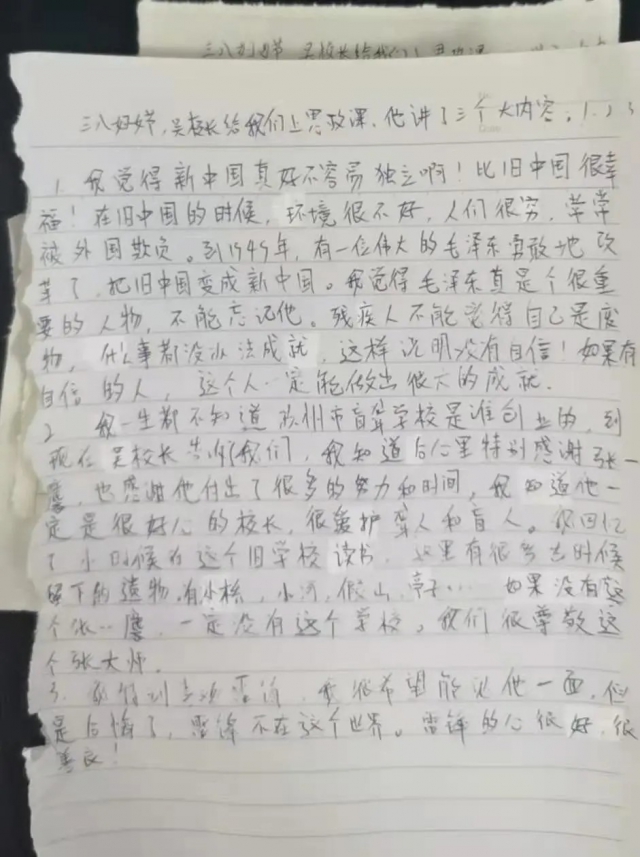 三八妇女节 吴校长给我们上思政课
三八妇女节，吴校长给我们上思政课，他讲了三个大内容，1、2、3
1. 我觉得新中国真好不容易独立啊！比旧中国很幸
福！在旧中国的时候，环境很不好，人们很穷，常常
被外国欺负。到1949年，有一位伟大的毛泽东勇敢地改
革了，把旧中国变成新中国。我觉得毛泽东真是个很重
要的人物，不能忘记他。残疾人不能觉得自己是废
物，什么事都没办法成就，这样说明没有自信！如果有
自信的人，这个人一定能做出很大的成就.
2 我一生都不知道苏州市盲聋学校是谁创业的，到
现在吴校长告诉我们，我知道后心里特别感谢张一
麐，也感谢他付出了很多的努力和时间，我知道他一
定是很好心的校长，很爱护聋人和盲人。我回忆
了小时候在这个旧学校读书，这里有很多古时候
留下的遗物，有小桥，小河，假山，亭子… 如果没有这
个张一麐，一定没有这个学校，我们很尊敬这
个张大师.
3. 雷锋，我很希望能见他一面，但
是后悔了，雷锋不在这个世界。雷锋的心很好，很
善良！